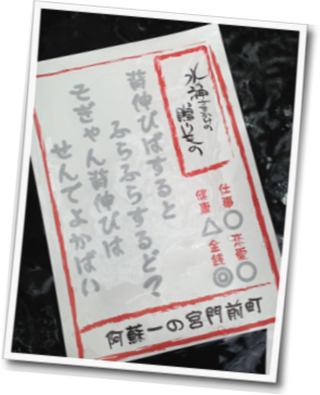 水神さまからの
贈りもの
仕事○
恋愛○
健康△
金銭◎
背伸びばすると
ふらふらするど?
そぎゃん背伸びは
せんでよかばい
阿蘇一の宮門前町